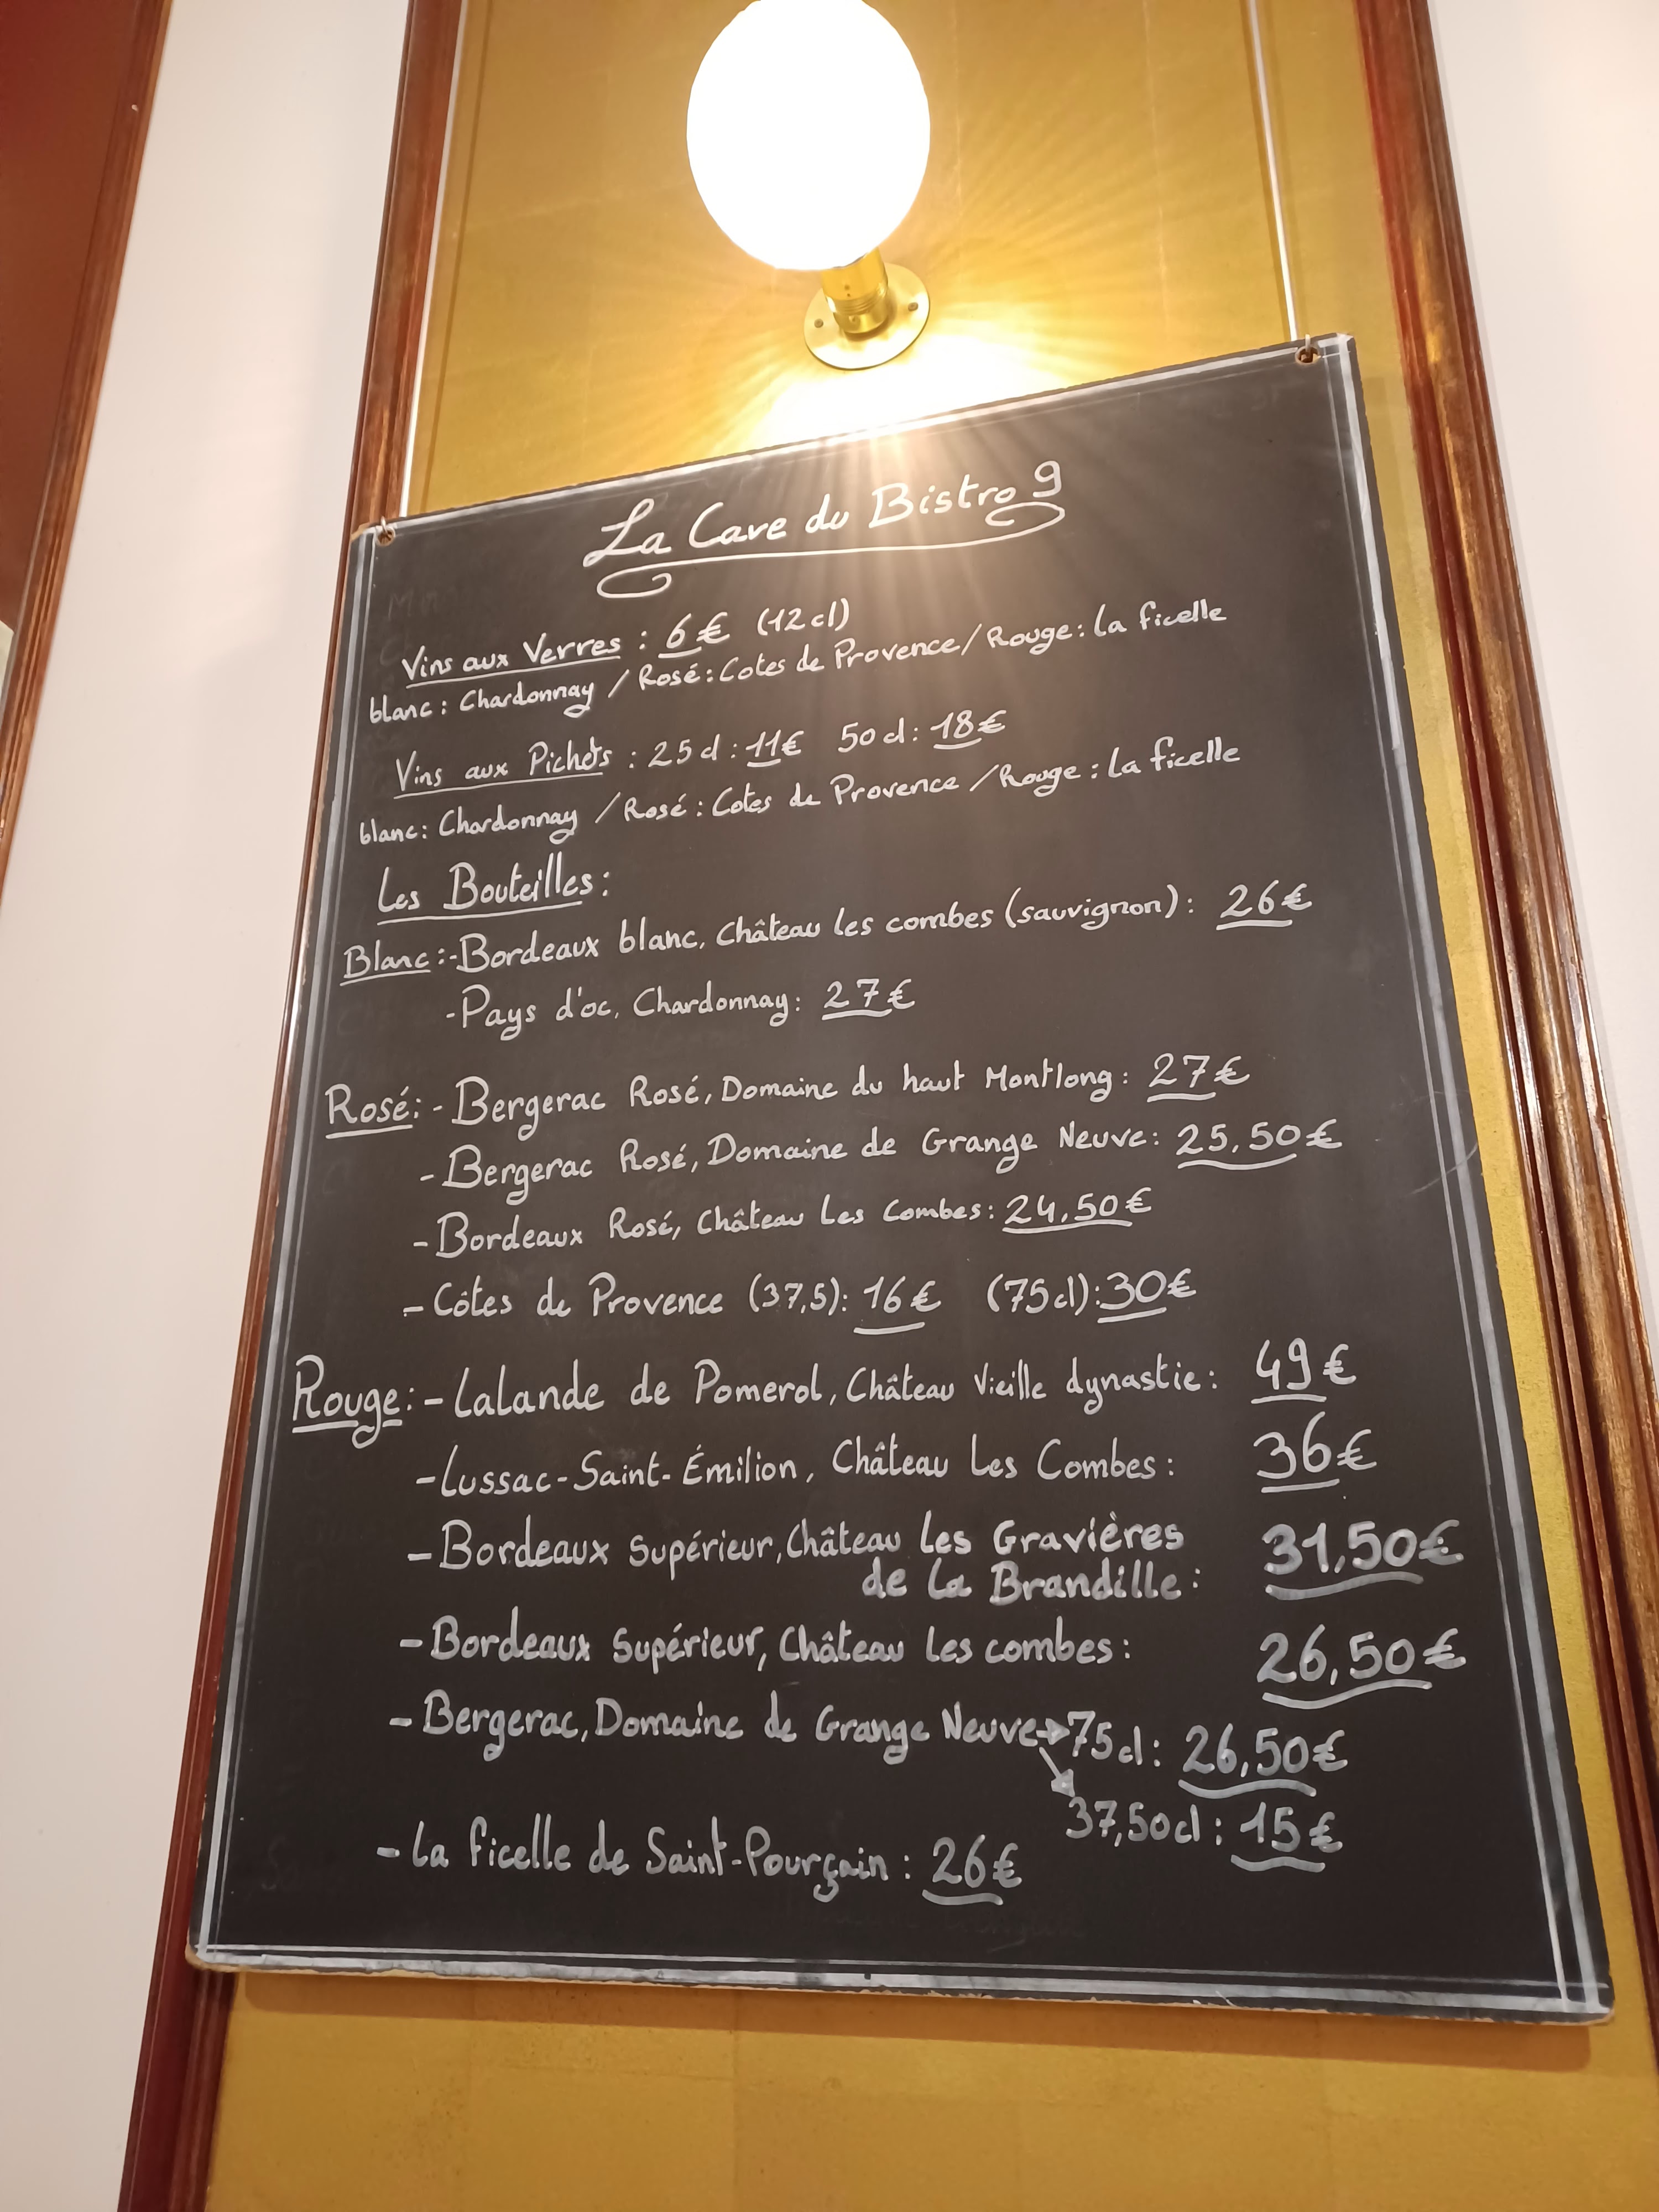 La Cave du Bistro 9
Vins aux Verres : 6€ (12 cl)
blanc : Chardonnay / Rosé : Cotes de Provence / Rouge : la ficelle
Vins aux Pichets : 25 cl : 11€ 50 cl : 18€
blanc : Chardonnay / Rosé : Cotes de Provence / Rouge : la ficelle
Les Bouteilles :
Blanc : - Bordeaux blanc, Château les combes (sauvignon) : 26€
- Pays d'oc, Chardonnay : 27€
Rosé : - Bergerac Rosé, Domaine du haut Montlong : 27€
- Bergerac Rosé, Domaine de Grange Neuve : 25,50€
- Bordeaux Rosé, Château Les Combes : 24,50€
- Côtes de Provence (37,5) : 16€ (75 cl) : 30€
Rouge : - Lalande de Pomerol, Château Vieille dynastie : 49€
- Lussac-Saint-Émilion, Château Les Combes : 36€
- Bordeaux Supérieur, Château Les Gravières
de la Brandille : 31,50€
- Bordeaux Supérieur, Château Les combes : 26,50€
- Bergerac, Domaine de Grange Neuve → 75 cl : 26,50€
↘ 37,50 cl : 15€
- La ficelle de Saint-Pourçain : 26€